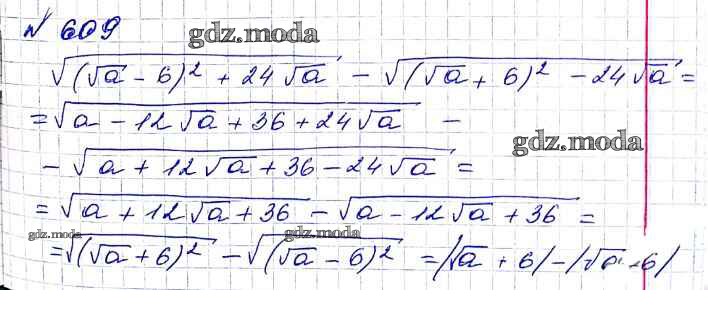 № 609
gdz.moda
√((√a - 6)² + 24√a) - √((√a + 6)² - 24√a) =
= √(a - 12√a + 36 + 24√a) -
gdz.moda
- √(a + 12√a + 36 - 24√a) =
= √(a + 12√a + 36) - √(a - 12√a + 36) =
gdz.moda
gdz.moda
= √((√a + 6)²) - √((√a - 6)²) = |√a + 6| - |√a - 6|